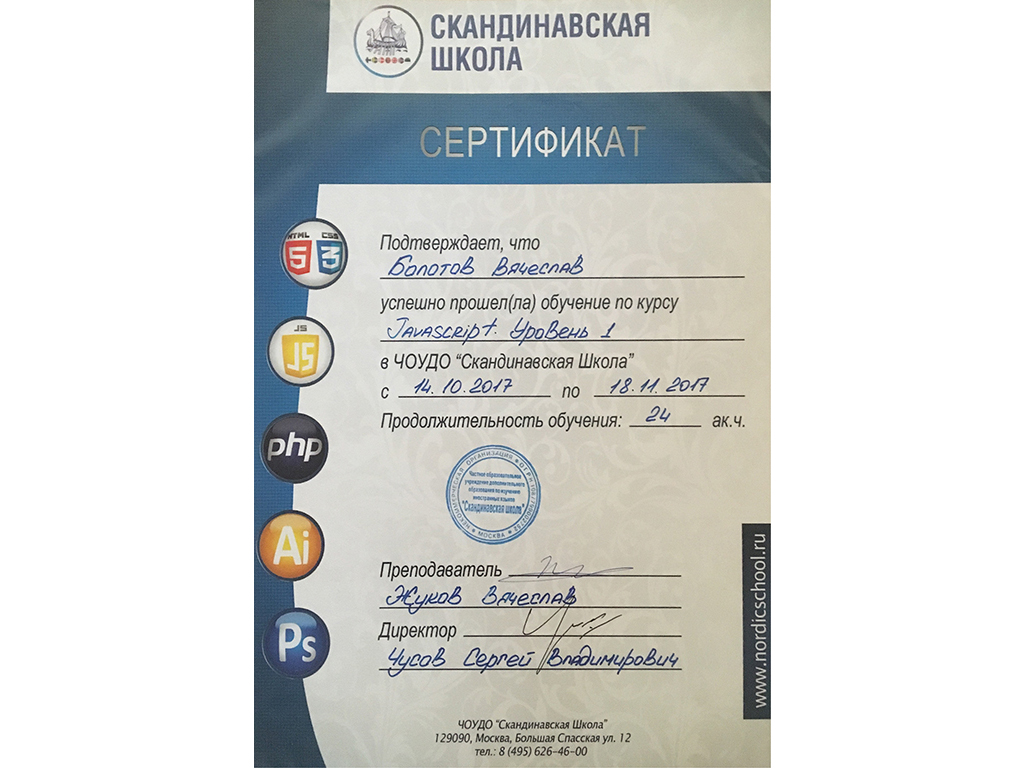 СКАНДИНАВСКАЯ
ШКОЛА
СЕРТИФИКАТ
HTML CSS
5 3
JS
JS
php
Ai
Ps
Подтверждает, что
Болотов Вячеслав
успешно прошел(ла) обучение по курсу
Javascript. Уровень 1
в ЧОУДО “Скандинавская Школа”
с 14.10.2017 по 18.11.2017
Продолжительность обучения: 24 ак.ч.
НЕКОММЕРЧЕСКАЯ ОРГАНИЗАЦИЯ
Частное образовательное
учреждение дополнительного
образования по изучению
иностранных языков
"Скандинавская школа"
МОСКВА
Преподаватель
Жуков Вячеслав
Директор
Чусов Сергей Владимирович
www.nordicschool.ru
ЧОУДО “Скандинавская Школа”
129090, Москва, Большая Спасская ул. 12
тел.: 8 (495) 626-46-00